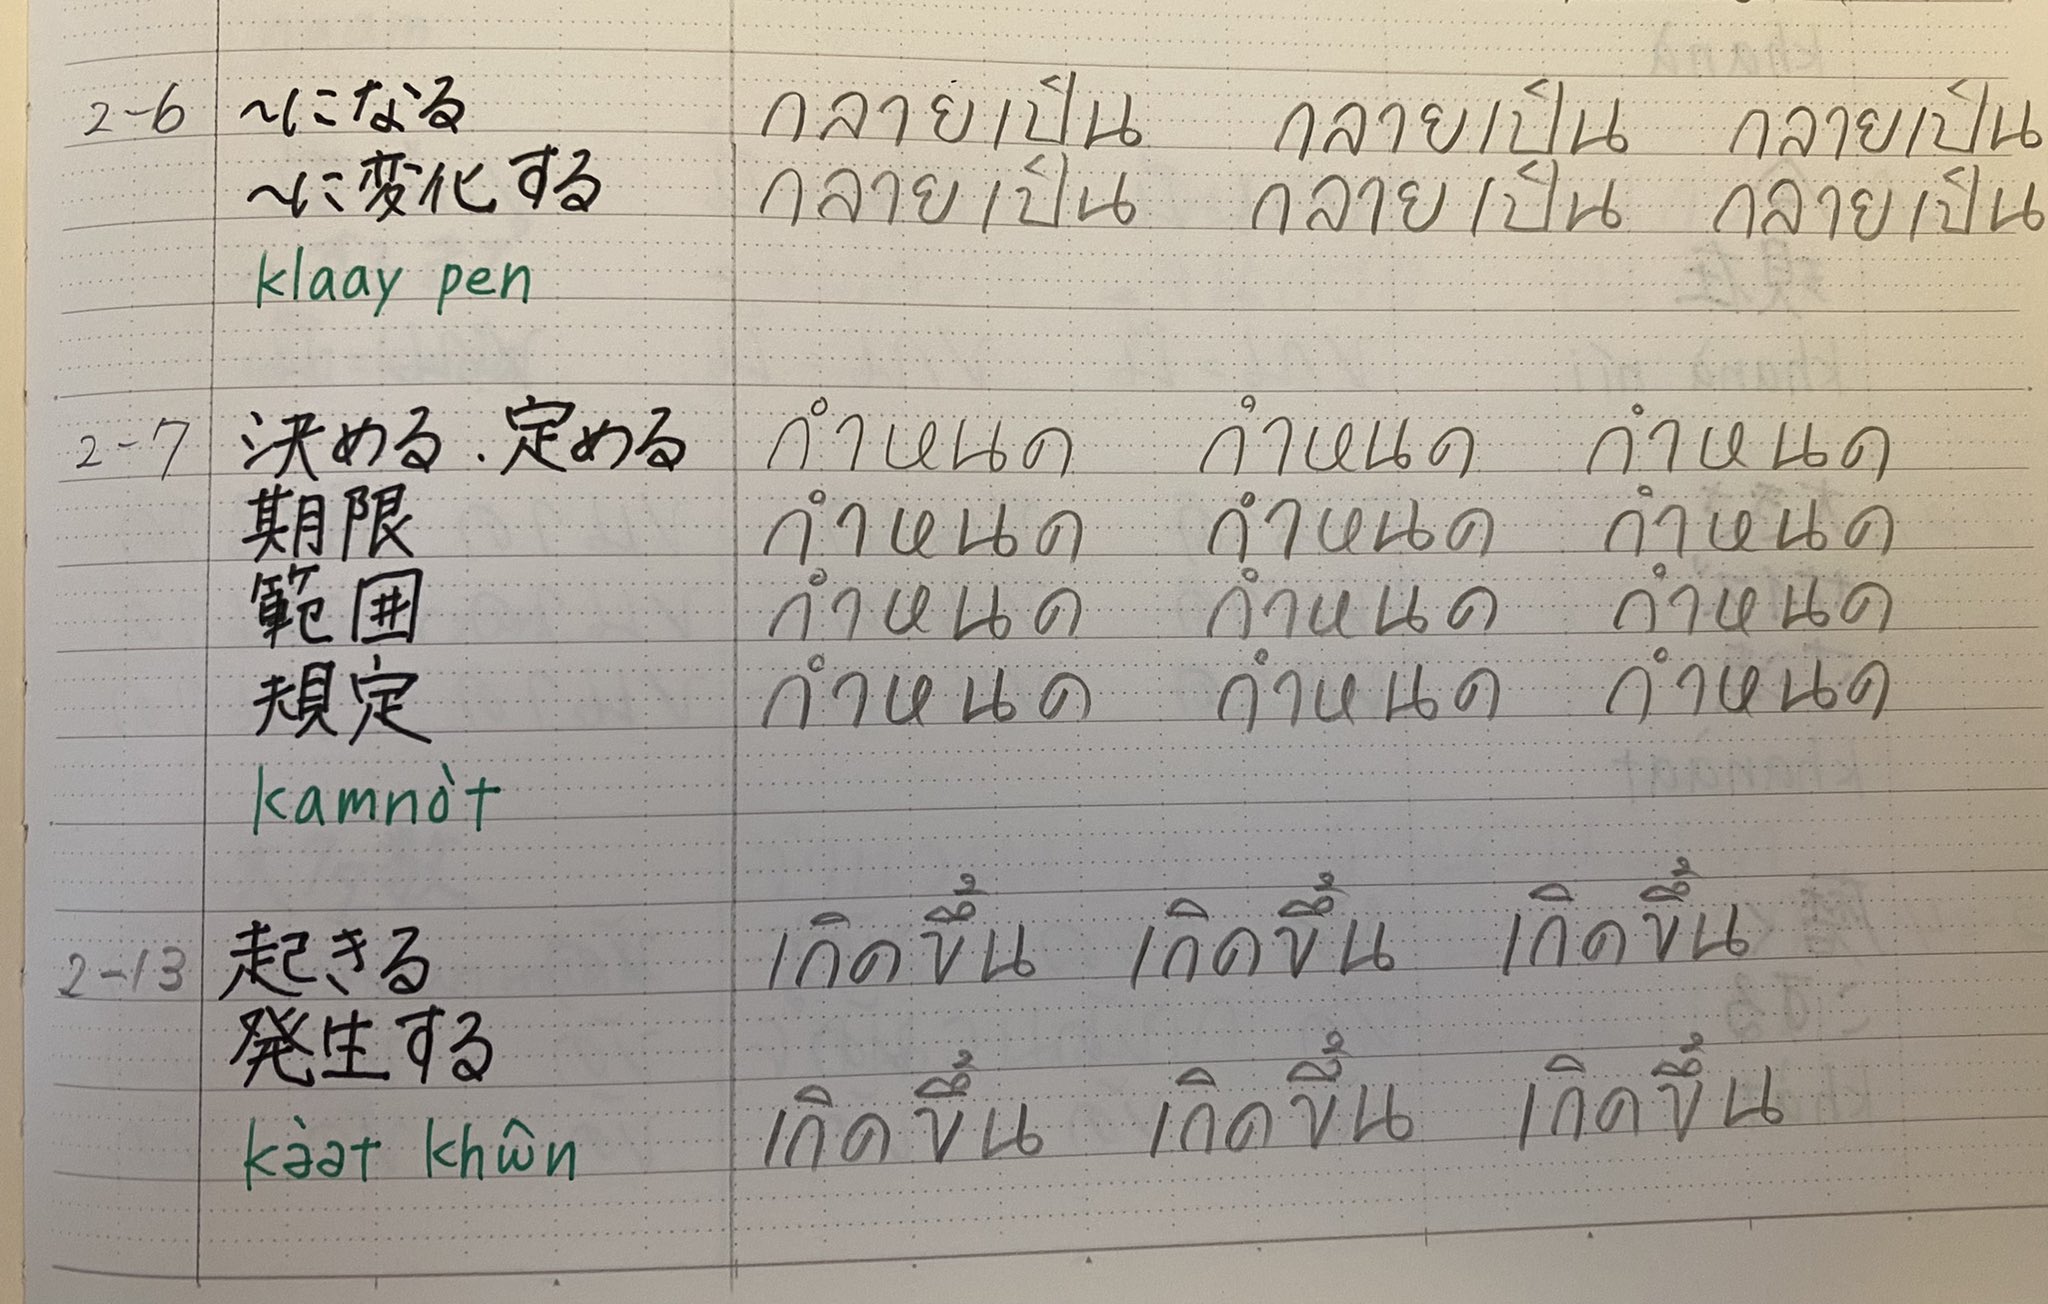 2-6 〜になる กลายเป็น กลายเป็น กลายเป็น
〜に変化する กลายเป็น กลายเป็น กลายเป็น
klaay pen
2-7 決める・定める กำหนด กำหนด กำหนด
期限 กำหนด กำหนด กำหนด
範囲 กำหนด กำหนด กำหนด
規定 กำหนด กำหนด กำหนด
kamnòt
2-13 起きる เกิดขึ้น เกิดขึ้น เกิดขึ้น
発生する
kə̀ət khŵn เกิดขึ้น เกิดขึ้น เกิดขึ้น